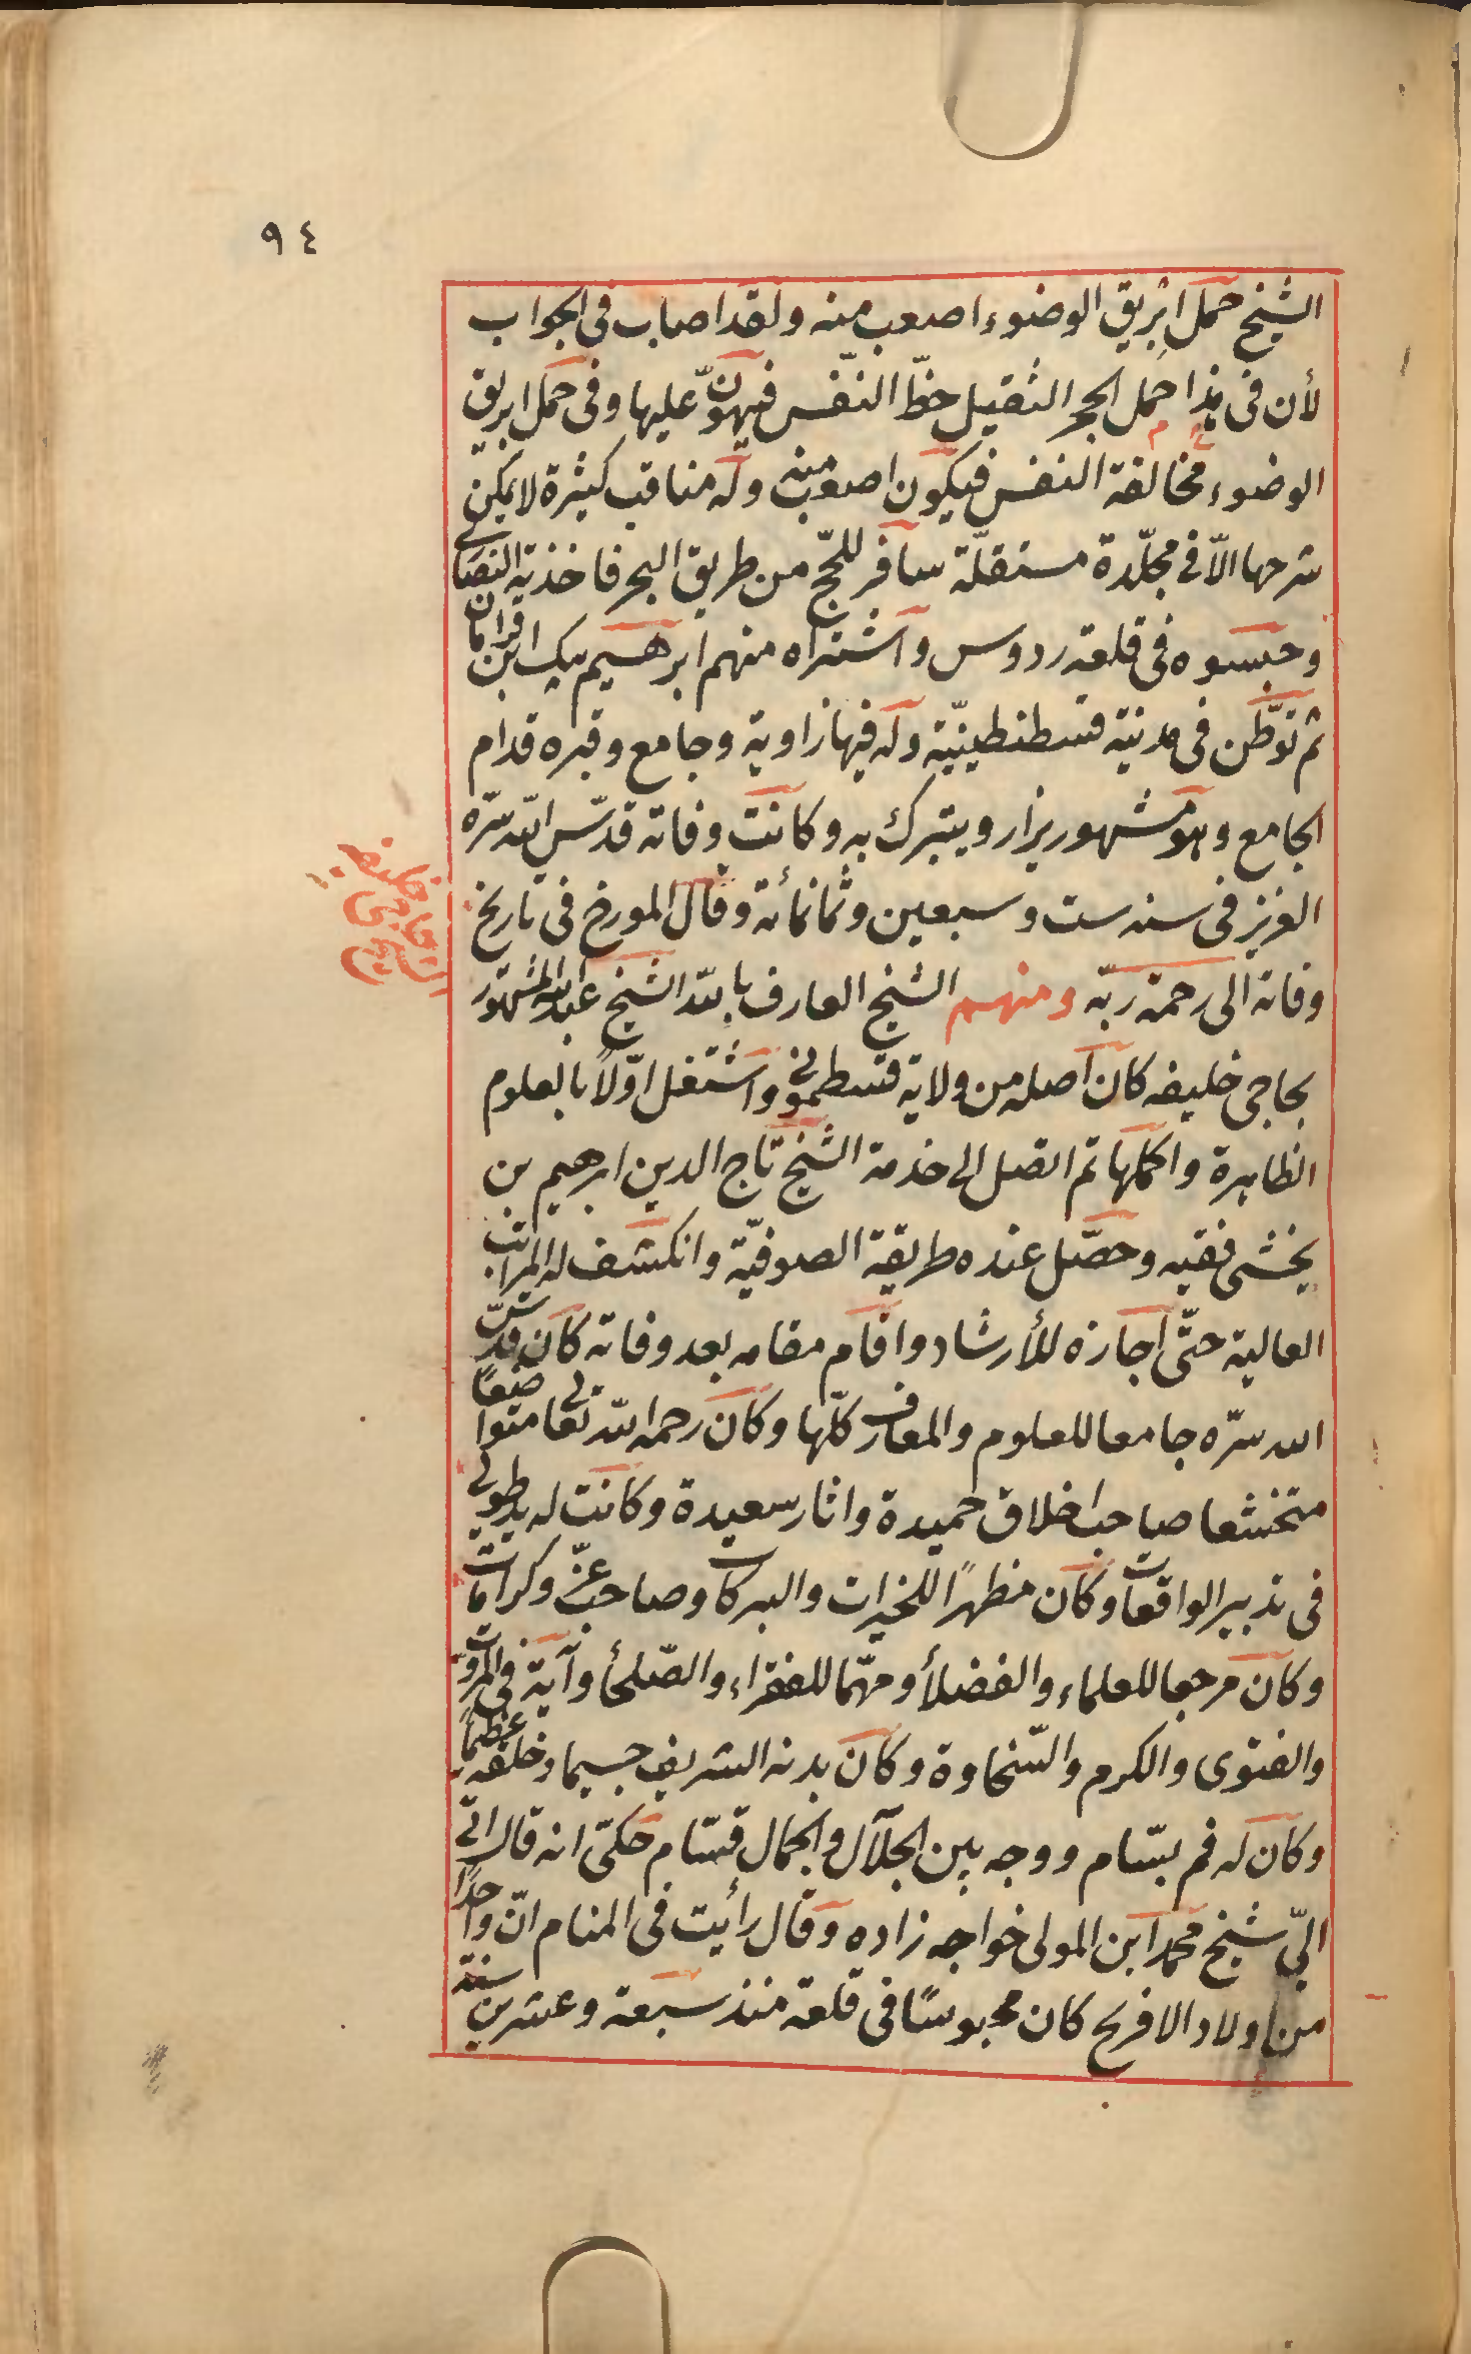 ٩٤
الشيخ حمل ابريق الوضوء اصعب منه ولقد اصاب فى الجواب
لأن فى هذا حمل الحجر الثقيل حظّ النّفس فيهوّن عليها وفى حمل ابريق
الوضوء مخالفة النفس فيكون اصعب منه وله مناقب كثيرة لا يمكن
شرحها الاّ فى مجلّدة مستقلّة سافر للحّج من طريق البحر فاخذته النصارى
وحبسوه فى قلعة ردوس واشتراه منهم ابرهيم بيك ابن قرامان
ثم توّطن فى مدينة قسطنطينيّة وله فيها زاوية وجامع وقبره قدام
الجامع وهو مشهور يزار ويتبرك به وكانت وفاته قدّس الله سرّه
العزيز فى سنه ست وسبعين وثمانمائة وقال المورخ فى تاريخ
وفاته الى رحمة ربّه ومنهم الشيخ العارف بالله الشيخ عبدالله المشهور
بحاجى خليفه كان اصله من ولاية قسطمونى واشتغل اوّلاً بالعلوم
الظاهرة واكملها ثم اتصل الى خدمة الشيخ تاج الدين ابرهيم بن
يخشى فقيه وحصّل عنده طريقة الصوفيّة وانكشف له المراتب
العالية حتّى اجازه للأرشاد واقام مقامه بعد وفاته كان قدّس
الله سرّه جامعا للعلوم والمعارف كلّها وكان رحمه الله تعالى متواضعًا
متخشعا صاحب اخلاق حميدة واثار سعيدة وكانت له يد طولى
فى تدبير الواقعات وكان مظهرًا للخيرات والبركات وصاحب عزّ وكرامات
وكان مرجعا للعلماء والفضلأ ومهّما للفقراء والصّلحأ وآية فى المروّت
والفتوى والكرم والسّخاوة وكان بدنه الشريف جسيما وخلقه عظيمًا
وكان له فم بسّام ووجه بين الجلال والجمال قسّام حكىّ انه قال اتى
الىّ شيخ محمد ابن المولى خواجه زاده وقال رأيت فى المنام انّ واحدًا
من اولاد الافرنج كان محبوسًا فى قلعة منذ سبعة وعشرين سنة